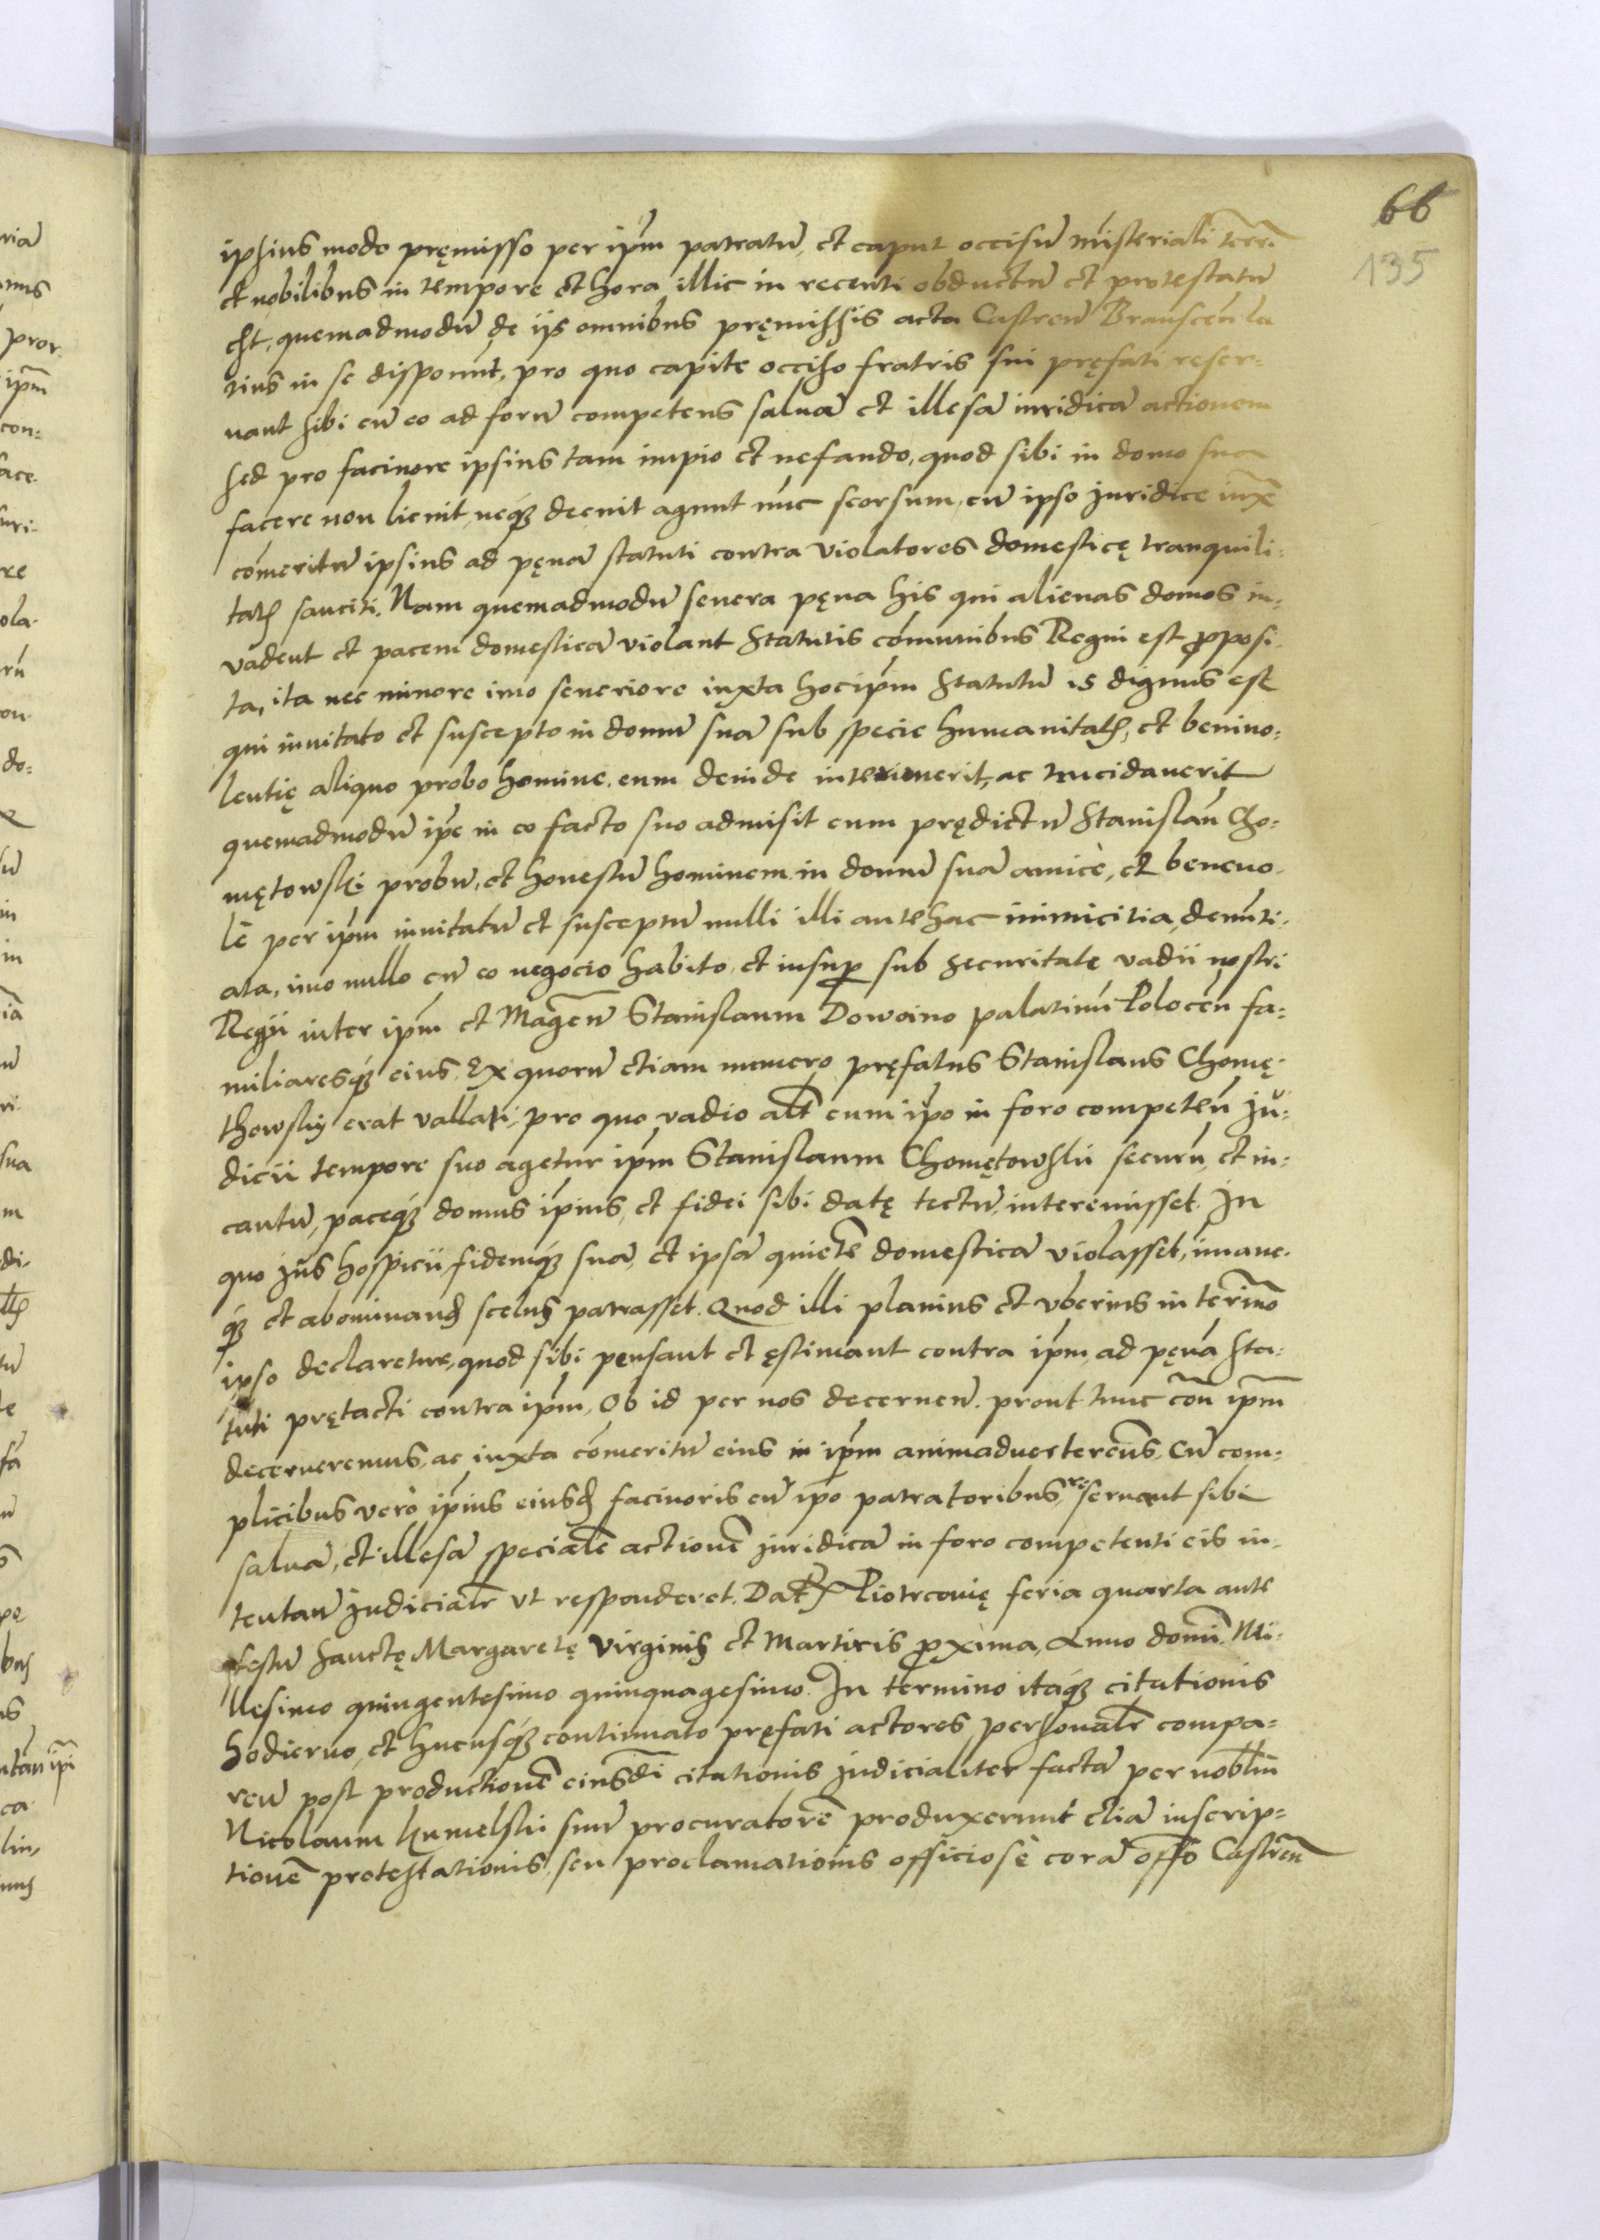 66
135
ipsius modo pręmisso per ip̃m patratũ, et caput occisũ misteriali terr̃i
et nobilibus in tempore et hora illic in recenti obductũ et protestatũ
est, quemadmodũ de ijs omnibus pręmissis acta Castreñ Branscẽn la
tius in se disponũt, pro quo capite occiso fratris sui pręfati reser:
vant sibi cũ eo ad forũ competens saluã et illesã iuridicã actionem
sed pro facinore ipsius tam impio et nefando, quod sibi in domo sua
facere non licuit, neq; decuit agunt nũc seorsum, cũ ipso juridice iuxͣ
cõmeritũ ipsius ad pęnã statuti contra violatores domesticę tranquili:
tatꝭ sanciti. Nam quemadmodũ seuera pęna his qui alienas domos in:
vadent et pacem domesticã violant Statutis cõmunibus Regni est ꝓposi:
ta, ita nec minore imo seueriore iuxta hoc ip̃m statutũ is dignus est
qui inuitato et suscepto in domũ suã sub specie humanitatꝭ, et beniuo:
lentię aliquo probo homine, eum deinde interimerit, ac trucidauerit
quemadmodũ ip̃e in eo facto suo admisit eum prędictũ Stanislaũ Cho:
mętowski probũ, et honestũ hominem in domũ suã amicè, et beneuo:
lè per ip̃m inuitatũ et susceptũ nulli illi antehac inimicitia, denũti:
ata, imo nullo cũ eo negocio habito, et insuꝑ sub securitate vadii nostri
Regii inter ip̃m et Magẽũ Stanislaum Dowoino palatinũ Polocẽn fa:
miliaresq; eius, Ex quorũ etiam numero pręfatus Stanislaus Chomę:
thowsky erat vallati, pro quo vadio alt̃ cum ip̃o in foro competẽn Ju:
dicii tempore suo agetur ip̃m Stanislaum Chomętowski securũ, et in:
cautũ, paceq; domus ip̃ius, et fidei sibi datę tectũ, interemisset. In
quo jus hospicii, fidemq; suã, et ipsã quietẽ domesticã violasset, imane:
q; et abominandꝭ scelus patrasset. Quod illi planius et vberius in termĩo
ipso declaretur, quod sibi pensant et ęstimant contra ip̃m, ad pęnã sta:
tuti prętacti contra ip̃m, Ob id per nos decerneñ. prout tunc coñ ip̃m
decerneremus, ac iuxta cõmeritũ eius in ip̃m animaduerterem̃s. Cũ com:
plicibus verò ip̃ius eiusdꝭ facinoris cũ ip̃o patratoribus, reseruant sibi
saluã, et illesã specialẽ actionẽ juridicã in foro competenti eis in:
tentañ judicialr̃ vt responderet. Datꝭ Piotrcouię feria quarta ante
festũ sanctę Margaretę virginis et Martiris ꝓxima, Anno domĩ Mi:
llesimo quingentesimo quinquagesimo. In termino itaq; citationis
hodierno, et hucusq; continuato pręfati actores personalr̃ compa:
reñ post productionẽ eiusdĩ citationis judicialiter factã per nobl̃m
Nicolaum Kumelski suũ procuratorẽ produxerunt etiã inscrip:
tionẽ protestationis, seu proclamationis officiosè corã offo Castrẽn